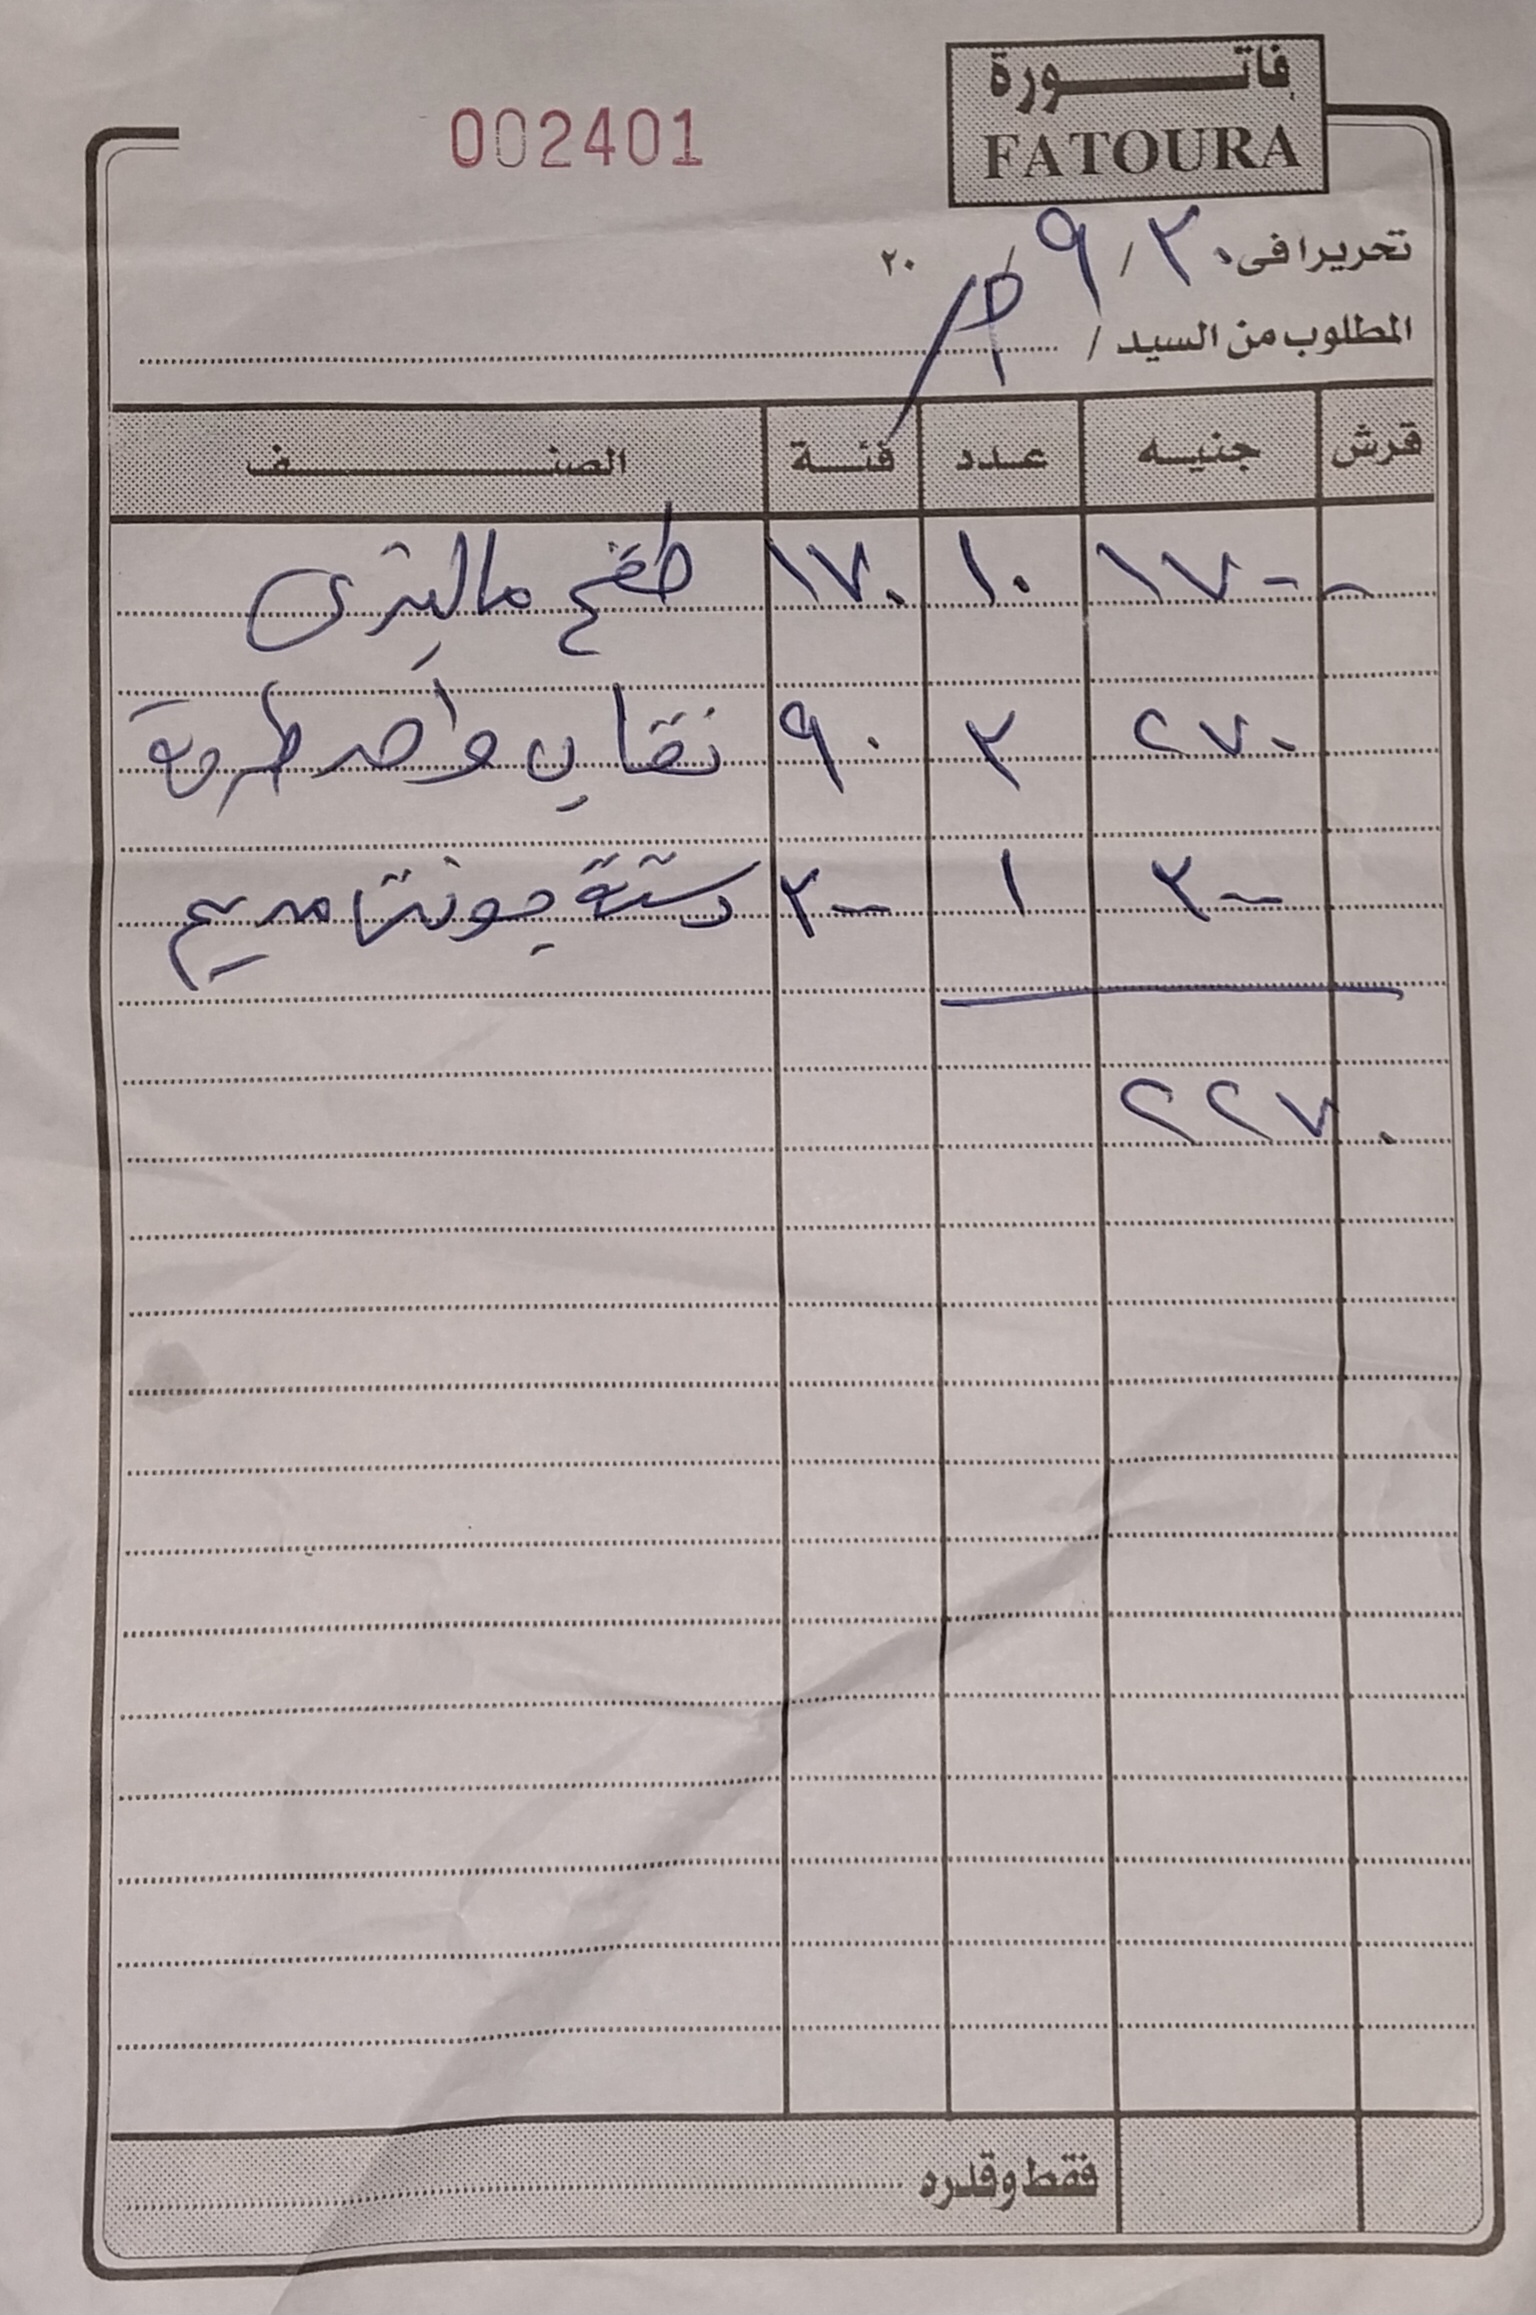 فاتورة
FATOURA
002401
تحريرا فى ٣٠ / ٩ / ٢٠
المطلوب من السيد /
قرش جنيه عدد فئة الصنف
١٧٠٠ ١٠ ١٧٠ طقم ماليزى
٢٧٠ ٣ ٩٠ نقاب
٣٠٠ ١ ٣٠٠ دستة جونتا مريم
٢٢٧٠
فقط وقدره